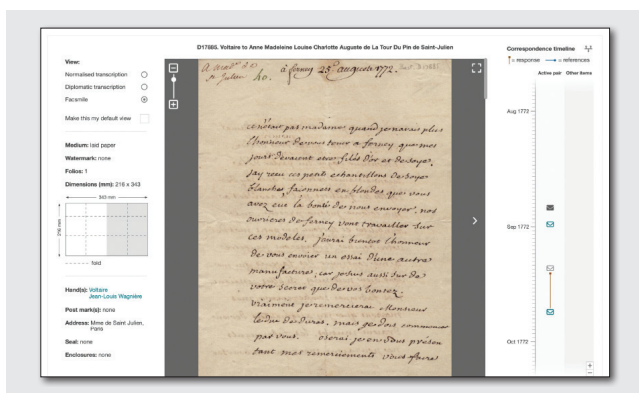 D17885. Voltaire to Anne Madeleine Louise Charlotte Auguste de La Tour Du Pin de Saint-Julien
View:
Normalised transcription
Diplomatic transcription
Facsimile
Make this my default view
Medium: laid paper
Watermark: none
Folios: 1
Dimensions (mm): 216 x 343
343 mm
216 mm
fold
Hand(s): Voltaire
Jean-Louis Wagnière
Post mark(s): none
Address: Mme de Saint Julien,
Paris
Seal: none
Enclosures: none
à ferney 25e auguste 1772.
St Julien 40.
ce n'était pas madame quand je n'aurais plus
l'honneur de vous tenir a ferney que mes
jours devaient etre filés d'or et de soye.
j'ay reçu ces petits échantillons de soye
blanche, façonnés en blondes que vous
avez eue la bonté de nous envoyer, nos
ouvrieres de ferney vont travailler sur
ces modeles. j'aurai bientot l'honneur
de vous envoier un essai d'une autre
manufacture, car je suis aussi sur de
votre secret que de vos bontez.
vraiment je remercierai Monsieur
le duc de duras, mais je dois commencer
par vous. oserai je en vous présen
tant mes remerciements vous faire
Correspondence timeline
= response
= references
Active pair
Other items
Aug 1772
Sep 1772
Oct 1772
+
-